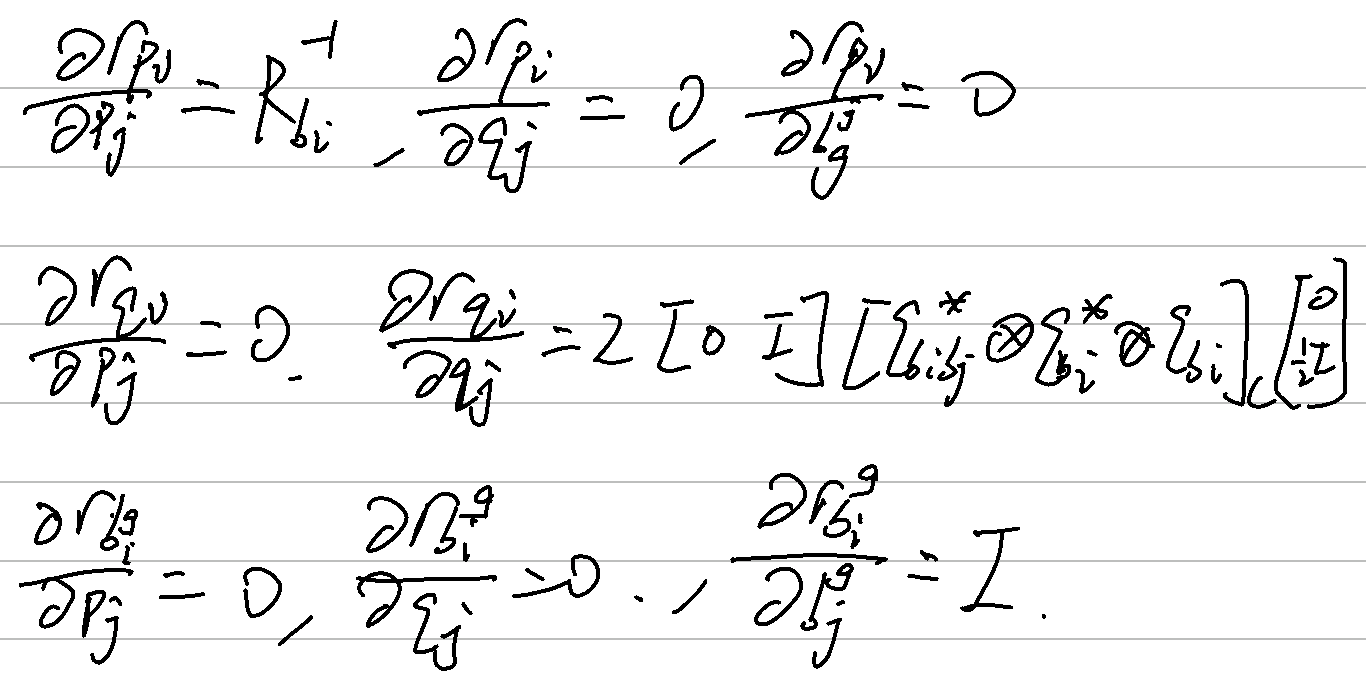 ∂r_{p_i}/∂p_j = R_{b_i}^{-1}, ∂r_{p_i}/∂q_j = 0, ∂r_{p_i}/∂b_g^j = 0
∂r_{q_i}/∂p_j = 0. ∂r_{q_i}/∂q_j = 2 [0 I] [q_{b_i b_j}^* ⊗ q_{b_i}^* ⊗ q_{b_i}]_L [0; ½I]
∂r_{b_i^g}/∂p_j = 0, ∂r_{b_i^g}/∂q_j = 0 ., ∂r_{b_i^g}/∂b_j^g = I.